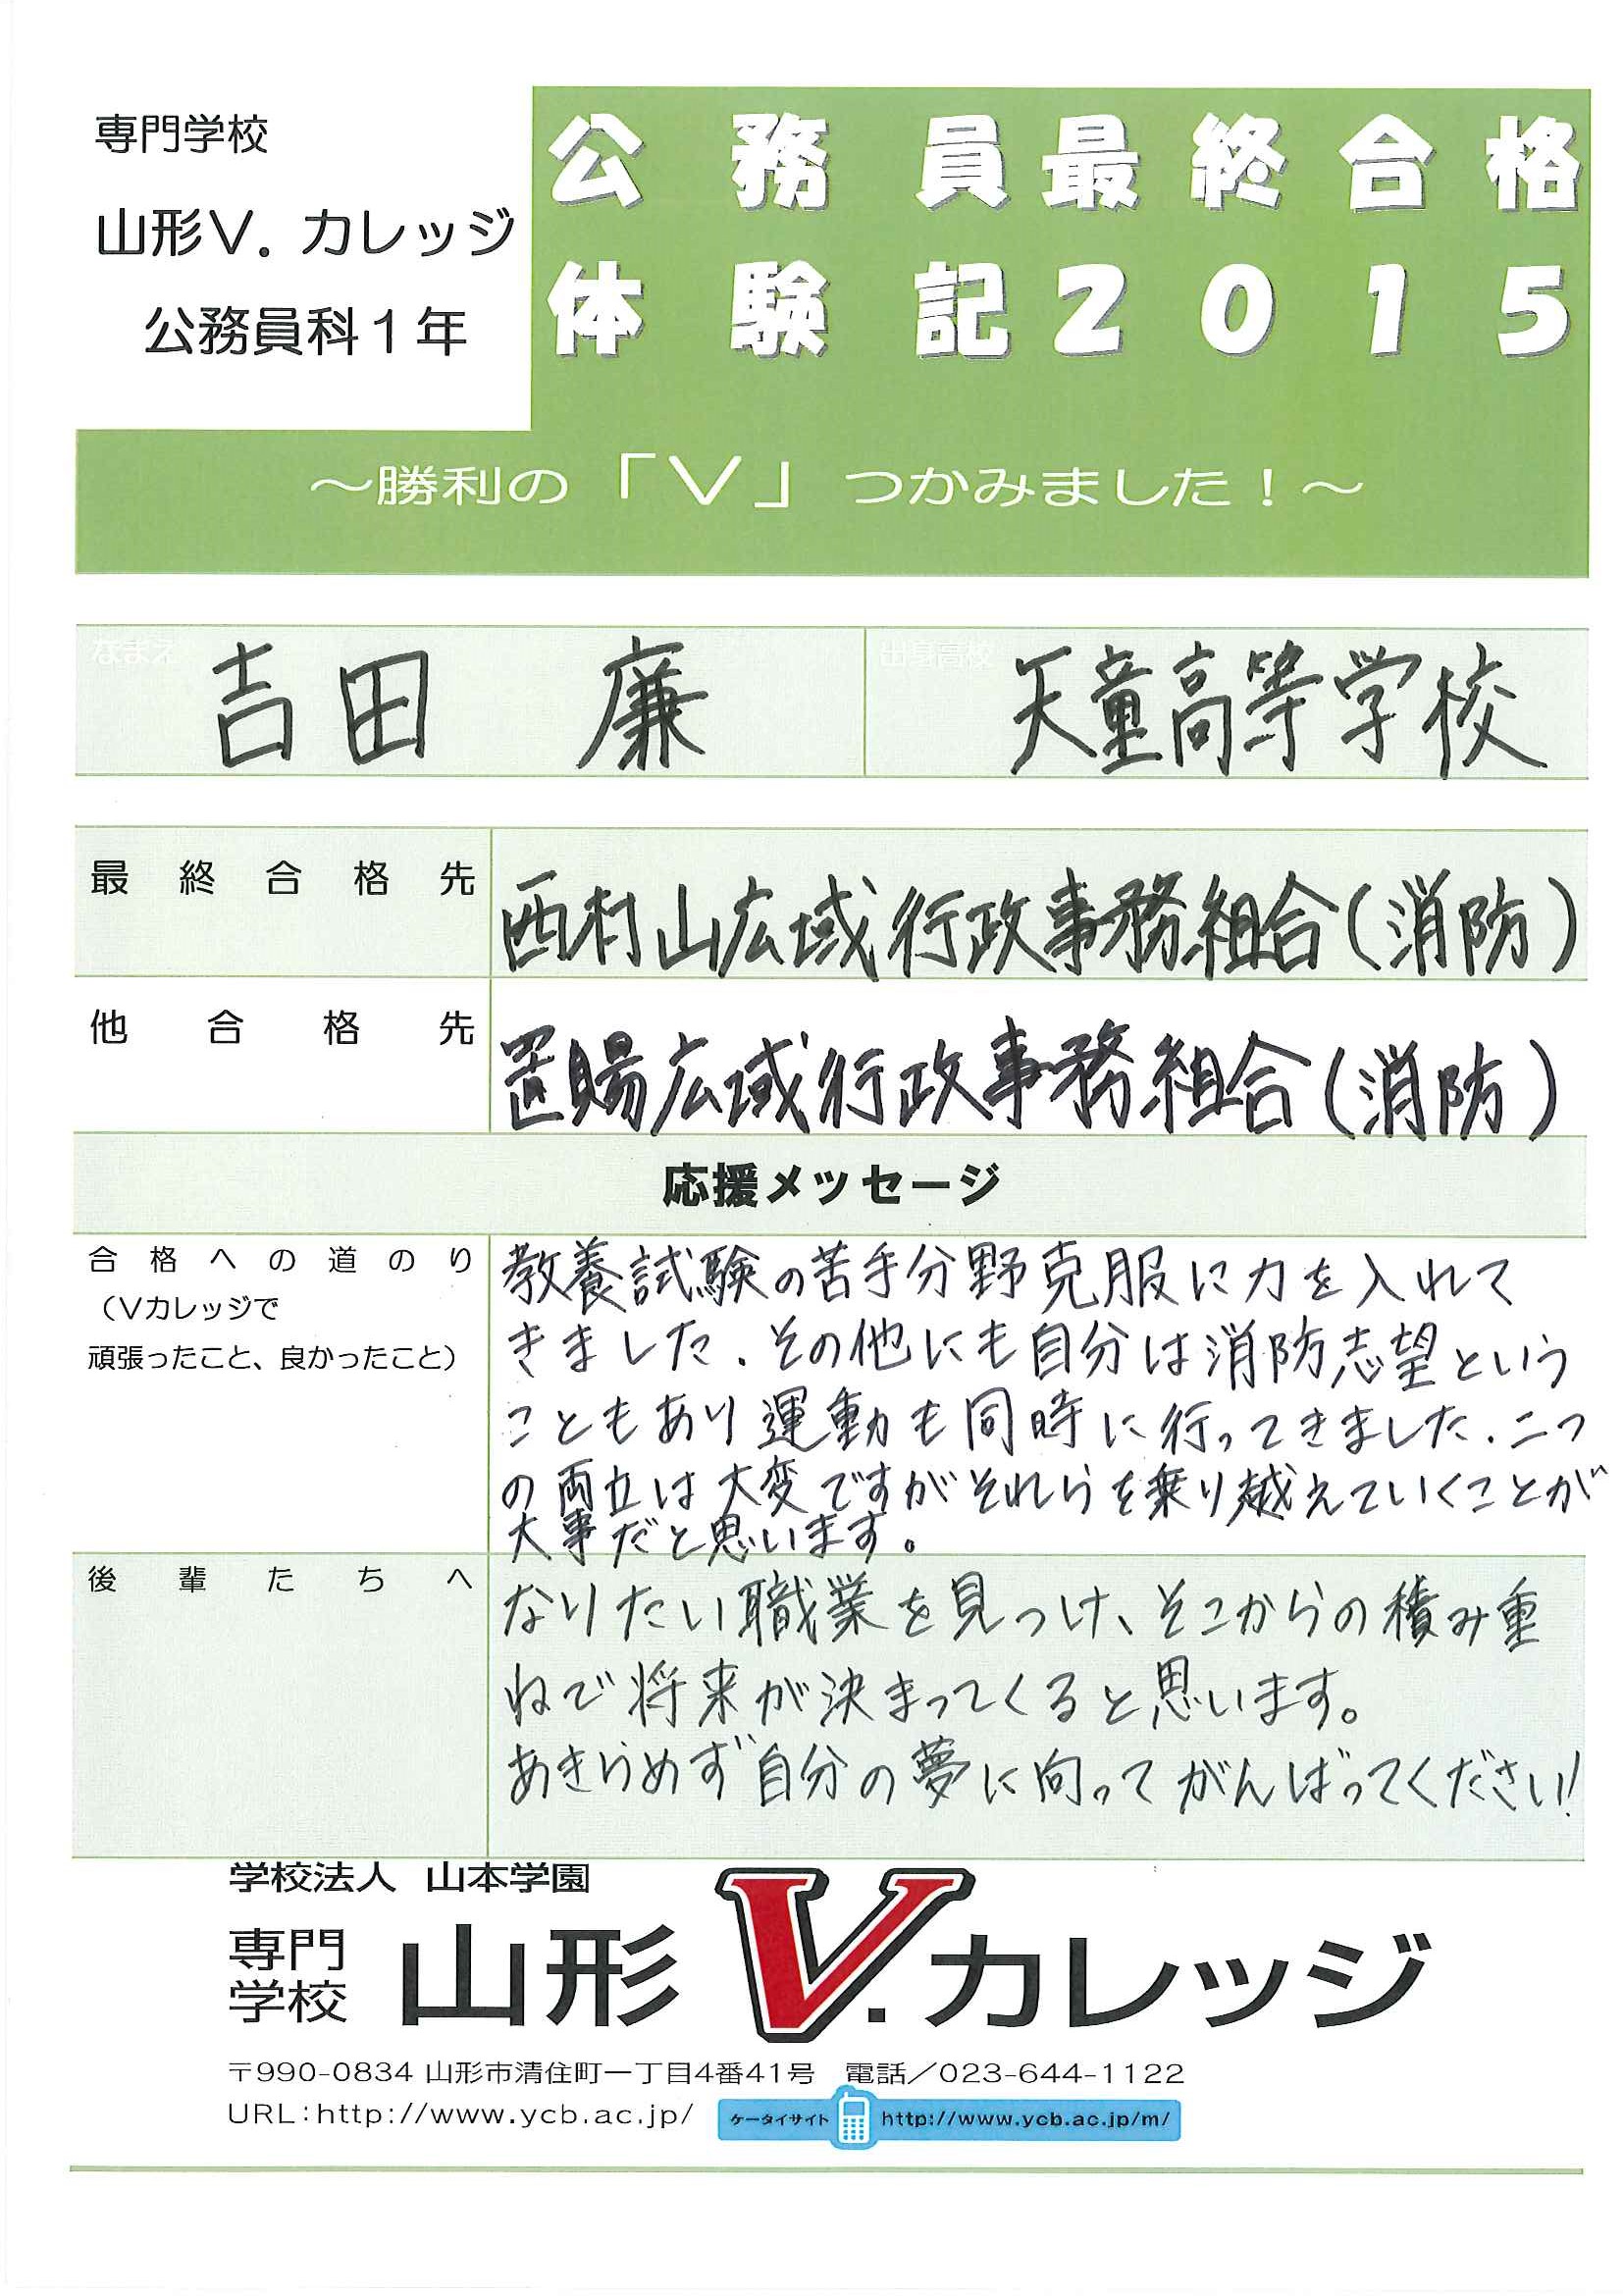 専門学校
山形V．カレッジ
公務員科１年
公務員最終合格
体験記２０１５
～勝利の「V」つかみました！～
なまえ
吉田 廉
出身高校
天童高等学校
最終合格先
西村山広域行政事務組合(消防)
他合格先
置賜広域行政事務組合(消防)
応援メッセージ
合格への道のり
（Vカレッジで
頑張ったこと、良かったこと）
教養試験の苦手分野克服に力を入れて
きました．その他にも自分は消防志望という
こともあり運動も同時に行ってきました．二つ
の両立は大変ですがそれらを乗り越えていくことが
大事だと思います。
後輩たちへ
なりたい職業を見つけ、そこからの積み重
ねで将来が決まってくると思います。
あきらめず自分の夢に向ってがんばってください!
学校法人 山本学園
専門学校 山形V.カレッジ
〒990-0834 山形市清住町一丁目4番41号 電話／023-644-1122
URL：http://www.ycb.ac.jp/ ケータイサイト http://www.ycb.ac.jp/m/